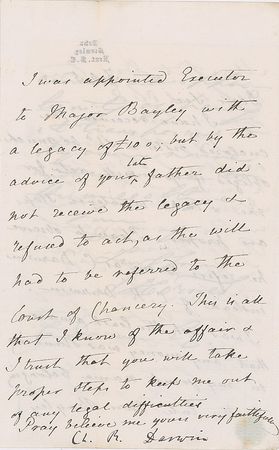 I was appointed Executor
to Major Bayley with
a legacy of £100; but by the
late
advice of your father did
not receive the legacy &
refused to act, as the will
had to be referred to the
Court of Chancery. This is all
that I know of the affair &
I trust that you will take
proper steps to keep me out
of any legal difficulties
Pray believe me yours very faithfully
Ch. R. Darwin